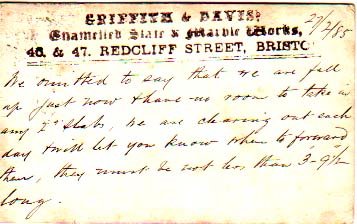 GRIFFITH & DAVIS,
Enamelled Slate & Marble Works,
46, & 47, REDCLIFF STREET, BRISTO
27/2/85
We omitted to say that we are full
up just now & have no room to take in
any 2" slabs, we are clearing out each
day & will let you know when to forward
them, they must be not less than 3-9½
long.